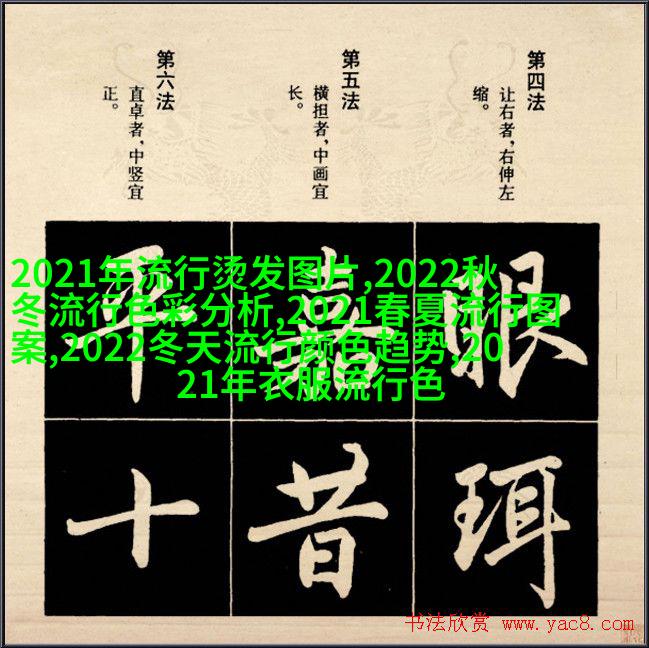 第四法
让右者，右伸左
缩。
第五法
横担者，中画宜
长。
第六法
直卓者，中竖宜
正。
2021年流行烫发图片,2022秋
冬流行色彩分析,2021春夏流行图
案,2022冬天流行颜色趋势,20
21年衣服流行色
眼
珥
昔
十
书法欣赏 www.yac8.com